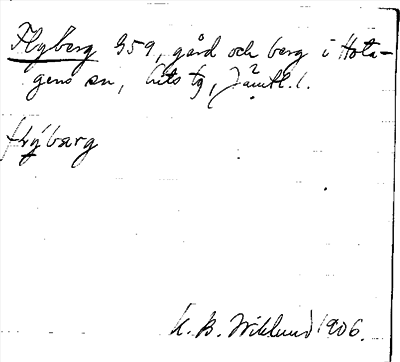 Flyberg 359, gård och berg i Hota-
gens sn, Lits tg, Jämtl. l.
flýbarg
K. B. Wiklund 1906.